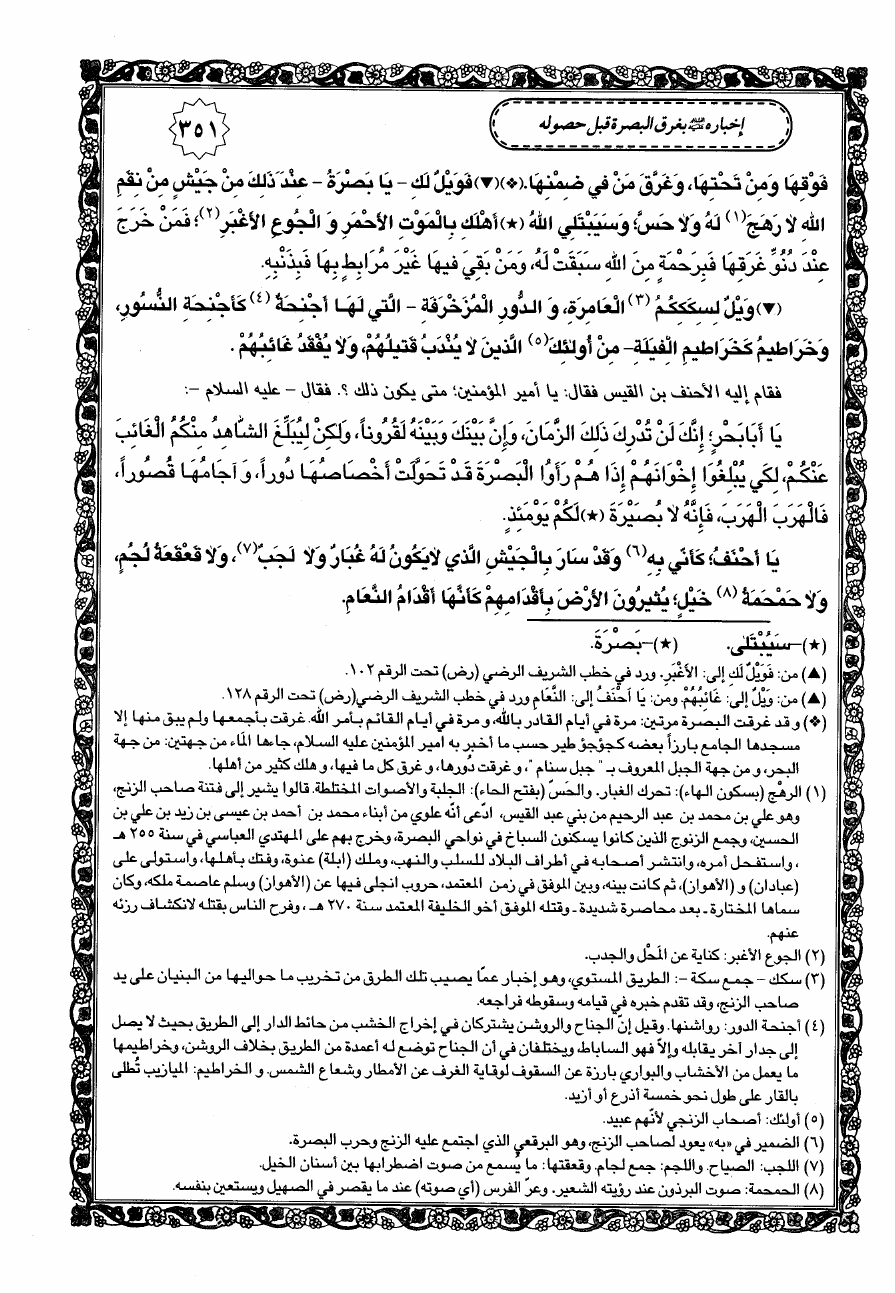 إخباره عليه السلام بغرق البصرة قبل حصوله
٣٥١
فَوْقِهَا وَمِنْ تَحْتِهَا، وَغَرَّقَ مَنْ في ضِمْنِهَا.(❖)(▼)فَوَيْلٌ لَكِ – يَا بَصْرَةُ – عِنْدَ ذَلِكَ مِنْ جَيْشٍ مِنْ نِقَمِ
اللهِ لاَ رَهَجَ(١) لَهُ وَلاَ حَسَّ؛ وَسَيَبْتَلِي اللهُ (★)أَهْلَكِ بِالْمَوْتِ الأَحْمَرِ وَ الْجُوعِ الأَغْبَرِ(٢)؛ فَمَنْ خَرَجَ
عِنْدَ دُنُوِّ غَرَقِهَا فَبِرَحْمَةٍ مِنَ اللهِ سَبَقَتْ لَهُ، وَمَنْ بَقِيَ فيهَا غَيْرَ مُرَابِطٍ بِهَا فَبِذَنْبِهِ.
(▼)وَيْلٌ لِسِكَكِكُمُ (٣) الْعَامِرَةِ، وَ الدُّورِ الْمُزَخْرَفَةِ – الَّتي لَهَا أَجْنِحَةٌ (٤) كَأَجْنِحَةِ النُّسُورِ،
وَخَرَاطيمُ كَخَرَاطيمِ الْفِيَلَةِ– مِنْ أُولَئِكَ(٥) الَّذينَ لاَ يُنْدَبُ قَتيلُهُمْ، وَلاَ يُفْقَدُ غَائِبُهُمْ .
فقام إليه الأحنف بن القيس فقال: يا أمير المؤمنين؛ متى يكون ذلك ؟. فقال – عليه السلام –:
يَا أَبَابَحْرٍ؛ إِنَّكَ لَنْ تُدْرِكَ ذَلِكَ الزَّمَانَ، وَإِنَّ بَيْنَكَ وَبَيْنَهُ لَقُرُوناً، وَلَكِنْ لِيُبَلِّغَ الشَّاهِدُ مِنْكُمُ الْغَائِبَ
عَنْكُمْ، لِكَي يُبْلِغُوا إِخْوَانَهُمْ إِذَا هُمْ رَأَوُا الْبَصْرَةَ قَدْ تَحَوَّلَتْ أَخْصَاصُهَا دُوراً، وَ آجَامُهَا قُصُوراً،
فَالْهَرَبَ الْهَرَبَ، فَإِنَّهُ لاَ بُصَيْرَةَ (★)لَكُمْ يَوْمَئِذٍ.
يَا أَحْنَفُ؛ كَأَنّي بِهِ(٦) وَقَدْ سَارَ بِالْجَيْشِ الَّذي لاَيَكُونُ لَهُ غُبَارٌ وَلاَ لَجَبٌ(٧)، وَلاَ قَعْقَعَةُ لُجُمٍ،
وَلاَ حَمْحَمَةُ (٨) خَيْلٍ؛ يُثيرُونَ الأَرْضَ بِأَقْدَامِهِمْ كَأَنَّهَا أَقْدَامُ النَّعَامِ.
(★)–سَيُبْتَلَى. (★)–بَصْرَةَ.
(▲) من: فَوَيْلٌ لَكِ إلى: الأَغْبَرِ. ورد في خطب الشريف الرضي (رض) تحت الرقم ١٠٢.
(▲) من: وَيْلٌ إلى: غَائِبُهُمْ. ومن: يَا أَحْنَفُ إلى: النَّعَامِ ورد في خطب الشريف الرضي(رض) تحت الرقم ١٢٨.
(❖) و قد غرقت البصرة مرتين: مرة في أيام القادر بالله، و مرة في أيام القائم بأمر الله. غرقت بأجمعها ولم يبق منها إلا
مسجدها الجامع بارزاً بعضه كجؤجؤ طير حسب ما أخبر به أمير المؤمنين عليه السلام، جاءها الماء من جهتين: من جهة
البحر، و من جهة الجبل المعروف بـ " جبل سنام "، و غرقت دُورها، و غرق كل ما فيها، و هلك كثير من أهلها.
(١) الرهْج (بسكون الهاء): تحرك الغبار. والحَسّ (بفتح الحاء): الجلبة والأصوات المختلطة. قالوا يشير إلى فتنة صاحب الزنج،
وهو علي بن محمد بن عبد الرحيم من بني عبد القيس، ادّعى أنّه علوي من أبناء محمد بن أحمد بن عيسى بن زيد بن علي بن
الحسين، وجمع الزنوج الذين كانوا يسكنون السباخ في نواحي البصرة، وخرج بهم على المهتدي العباسي في سنة ٢٥٥ هـ
، واستفحل أمره، وانتشر أصحابه في أطراف البلاد للسلب والنهب، وملك (ابلة) عنوة، وفتك بأهلها، واستولى على
(عبادان) و (الأهواز)، ثم كانت بينه، وبين الموفق في زمن المعتمد، حروب انجلى فيها عن (الأهواز) وسلم عاصمة ملكه، وكان
سماها المختارة ـ بعد محاصرة شديدة ـ وقتله الموفق أخو الخليفة المعتمد سنة ٢٧٠ هـ ، وفرح الناس بقتله لانكشاف رزئه
عنهم.
(٢) الجوع الأغبر: كناية عن المَحْل والجدب.
(٣) سكك – جمع سكة –: الطريق المستوي، وهو إخبار عمّا يصيب تلك الطرق من تخريب ما حواليها من البنيان على يد
صاحب الزنج، وقد تقدم خبره في قيامه وسقوطه فراجعه.
(٤) أجنحة الدور: رواشنها. وقيل إنّ الجناح والروشن يشتركان في إخراج الخشب من حائط الدار إلى الطريق بحيث لا يصل
إلى جدار آخر يقابله وإلاّ فهو الساباط، ويختلفان في أن الجناح توضع له أعمدة من الطريق بخلاف الروشن، وخراطيمها
ما يعمل من الأخشاب والبواري بارزة عن السقوف لوقاية الغرف عن الأمطار وشعاع الشمس. و الخراطيم: الميازيب تُطلى
بالقار على طول نحو خمسة أذرع أو أزيد.
(٥) أولئك: أصحاب الزنجي لأنّهم عبيد.
(٦) الضمير في «به» يعود لصاحب الزنج، وهو البرقعي الذي اجتمع عليه الزنج وحرب البصرة.
(٧) اللجب: الصياح. واللجم: جمع لجام. وقعقتها: ما يُسمع من صوت اضطرابها بين أسنان الخيل.
(٨) الحمحمة: صوت البرذون عند رؤيته الشعير. وعرّ الفرس (أي صوته) عند ما يقصر في الصهيل ويستعين بنفسه.